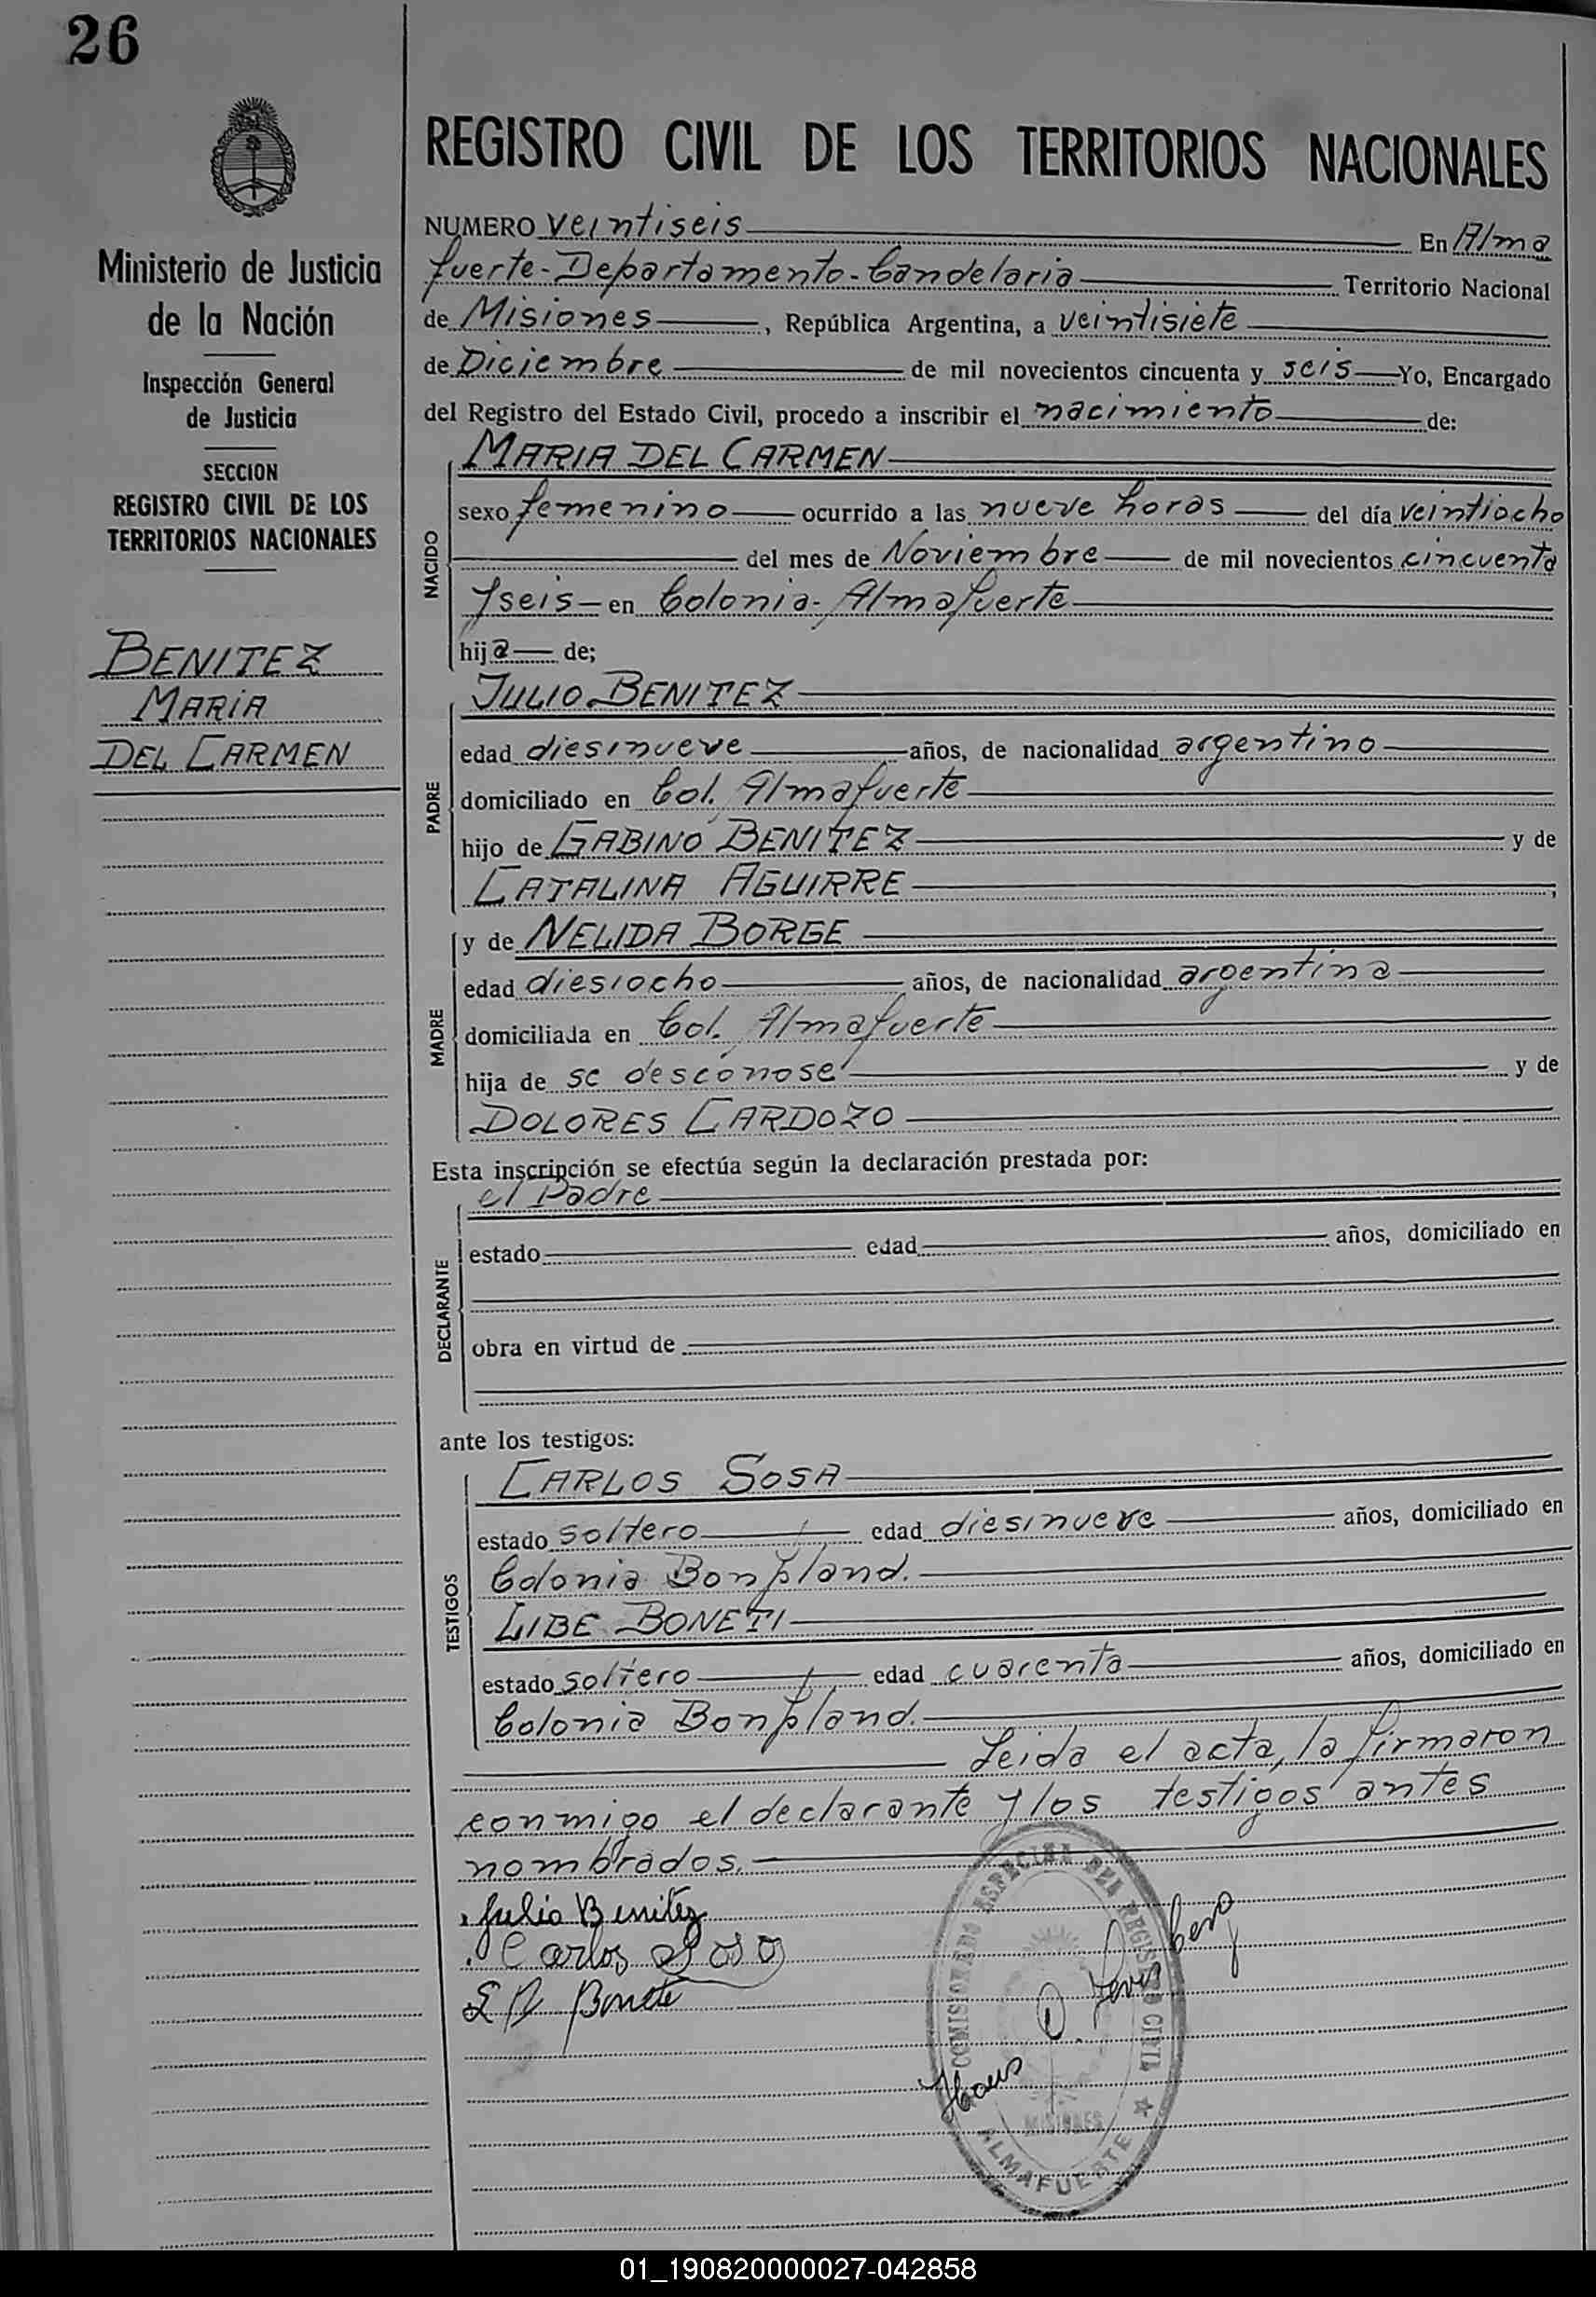 26
REGISTRO CIVIL DE LOS TERRITORIOS NACIONALES
Ministerio de Justicia
de la Nación
Inspección General
de Justicia
SECCION
REGISTRO CIVIL DE LOS
TERRITORIOS NACIONALES
BENITEZ
MARIA
DEL CARMEN
NUMERO veintiseis En Alma
fuerte-Departamento-Candelaria Territorio Nacional
de Misiones, República Argentina, a veintisiete
de Diciembre de mil novecientos cincuenta y seis Yo, Encargado
del Registro del Estado Civil, procedo a inscribir el nacimiento de:
NACIDO
MARIA DEL CARMEN
sexo femenino ocurrido a las nueve horas del día veintiocho
del mes de Noviembre de mil novecientos cincuenta
y seis en Colonia-Almafuerte
hija de;
PADRE
JULIO BENITEZ
edad diesinueve años, de nacionalidad argentino
domiciliado en Col. Almafuerte
hijo de GABINO BENITEZ y de
CATALINA AGUIRRE;
MADRE
y de NELIDA BORGE
edad diesiocho años, de nacionalidad argentina
domiciliada en Col. Almafuerte
hija de se desconose y de
DOLORES CARDOZO
Esta inscripción se efectúa según la declaración prestada por:
DECLARANTE
el Padre
estado edad años, domiciliado en
obra en virtud de
ante los testigos:
TESTIGOS
CARLOS SOSA
estado soltero edad diesinueve años, domiciliado en
Colonia Bonpland.
LIBE BONETI
estado soltero edad cuarenta años, domiciliado en
Colonia Bonpland.
Leida el acta, la firmaron
conmigo el declarante y los testigos antes
nombrados.
Julio Benitez
Carlos Sosa
COMISIONADO ESPECIAL DEL REGISTRO CIVIL
MISIONES
ALMAFUERTE
01_190820000027-042858